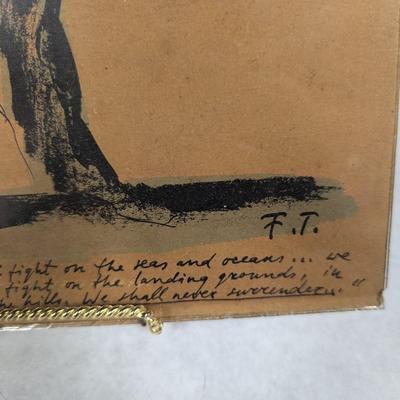 F.T.
fight on the seas and oceans... we
fight on the landing grounds, in
the hills. We shall never surrender..."